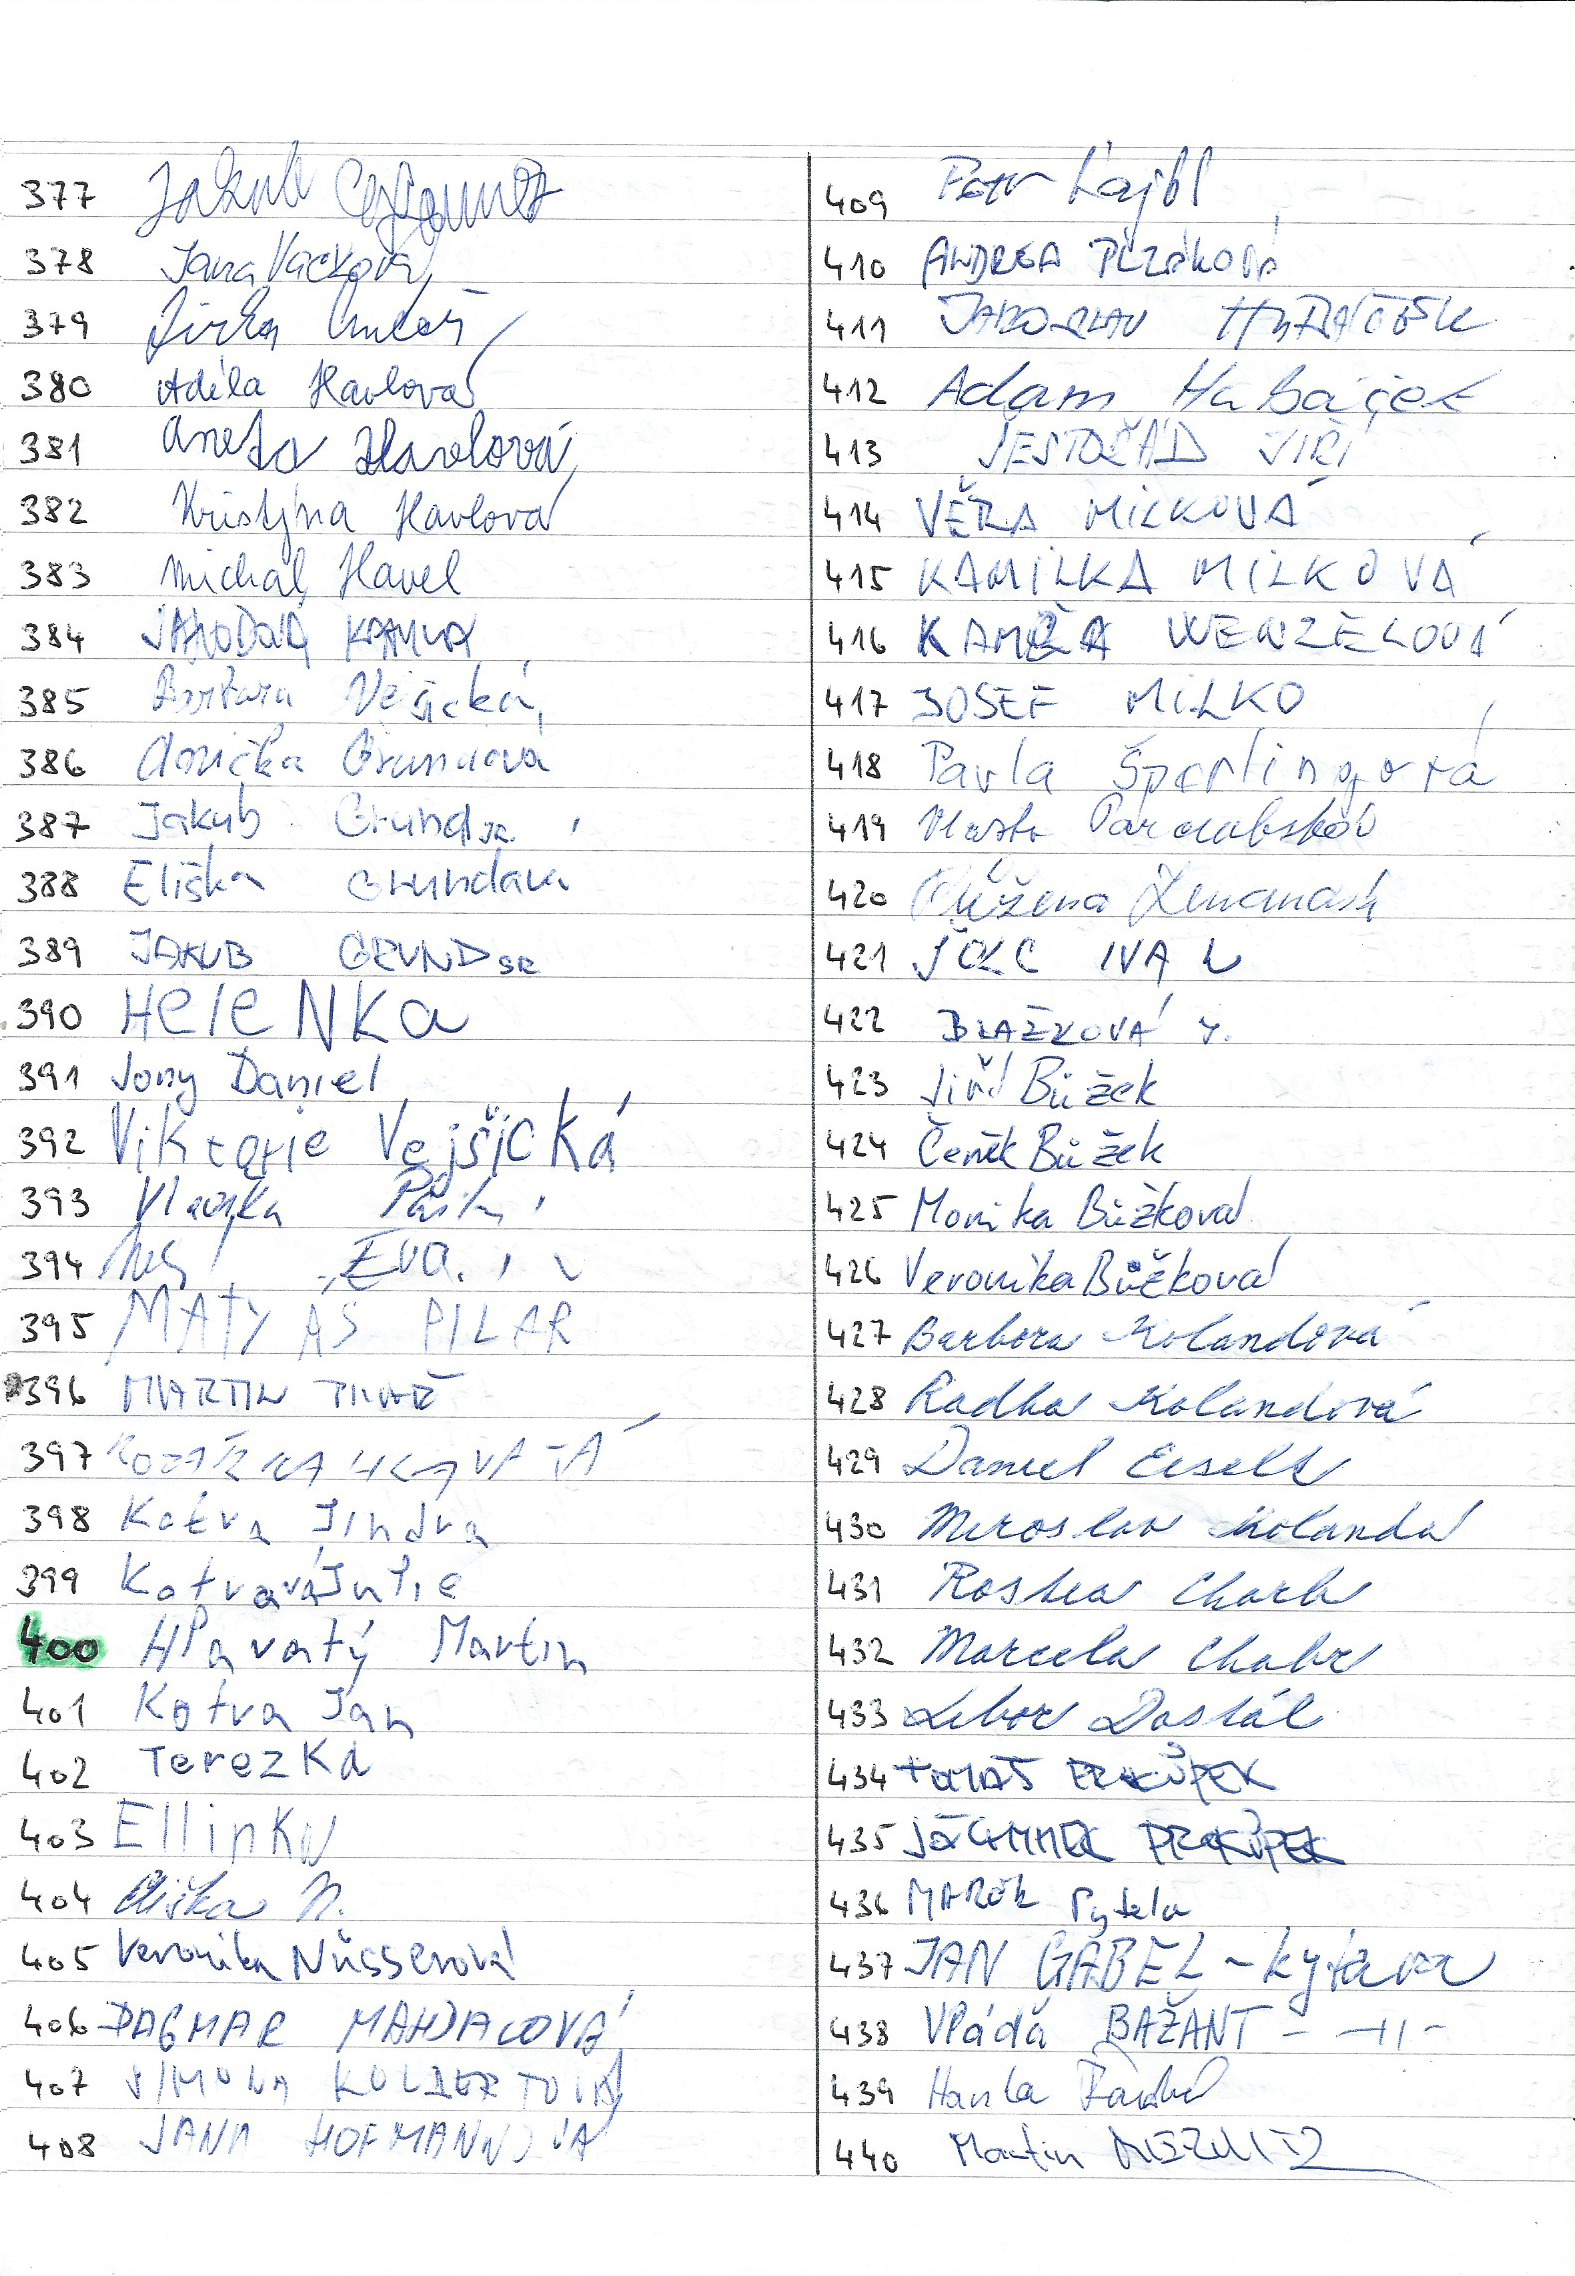 377 Jakub
378 Jana Vacková
379 Jirka
380 Adéla Havlová
381 Aneta Havlová
382 Kristýna Havlová
383 Michal Havel
384 JAHODOVÁ KAMILA
385 Barbara Vejšická
386 Anička Grundová
387 Jakub Grund jr.
388 Eliška Grundová
389 JAKUB GRUND SR
390 HeleNKa
391 Jony Daniel
392 Viktorie Vejšická
393
394 Eva
395 MATYÁŠ PILAŘ
396 MARTIN PILAŘ
397 HLAVATÁ
398 Kotva Jindra
399 Kotvová Julie
400 Hlavatý Martin
401 Kotva Jan
402 TerezKa
403 EllinKa
404 Eliška N.
405 Veronika Nüsserová
406 DAGMAR
407 SIMONA
408 JANA HOFMANNOVÁ
409 Petr Lajbl
410 ANDREA PLZÁKOVÁ
411 JAROSLAV
412 Adam Habáček
413 ŠESTOČÁD JIŘÍ
414 VĚRA MILKOVÁ
415 KAMILKA MILKOVÁ
416 WENZELOVÁ
417 JOSEF MILKO
418 Pavla Šperlingová
419 Vlasta
420 Růžena
421 ŠOLC IVAN
422 BLAŽKOVÁ
423 Jiří Bůžek
424 Čeněk Bůžek
425 Monika Bůžková
426 Veronika Bůžková
427 Barbora Kolandová
428 Radka Kolandová
429 Daniel Eiselt
430 Miroslav Kolanda
431
432 Marcela
433 Libor Dostál
434 TOMÁŠ PROKŮPEK
435 PROKŮPEK
436 MAREK Pytela
437 JAN GÁBEL - kytara
438 Vláďa BAŽANT - -11-
439 Hanka
440 Martin